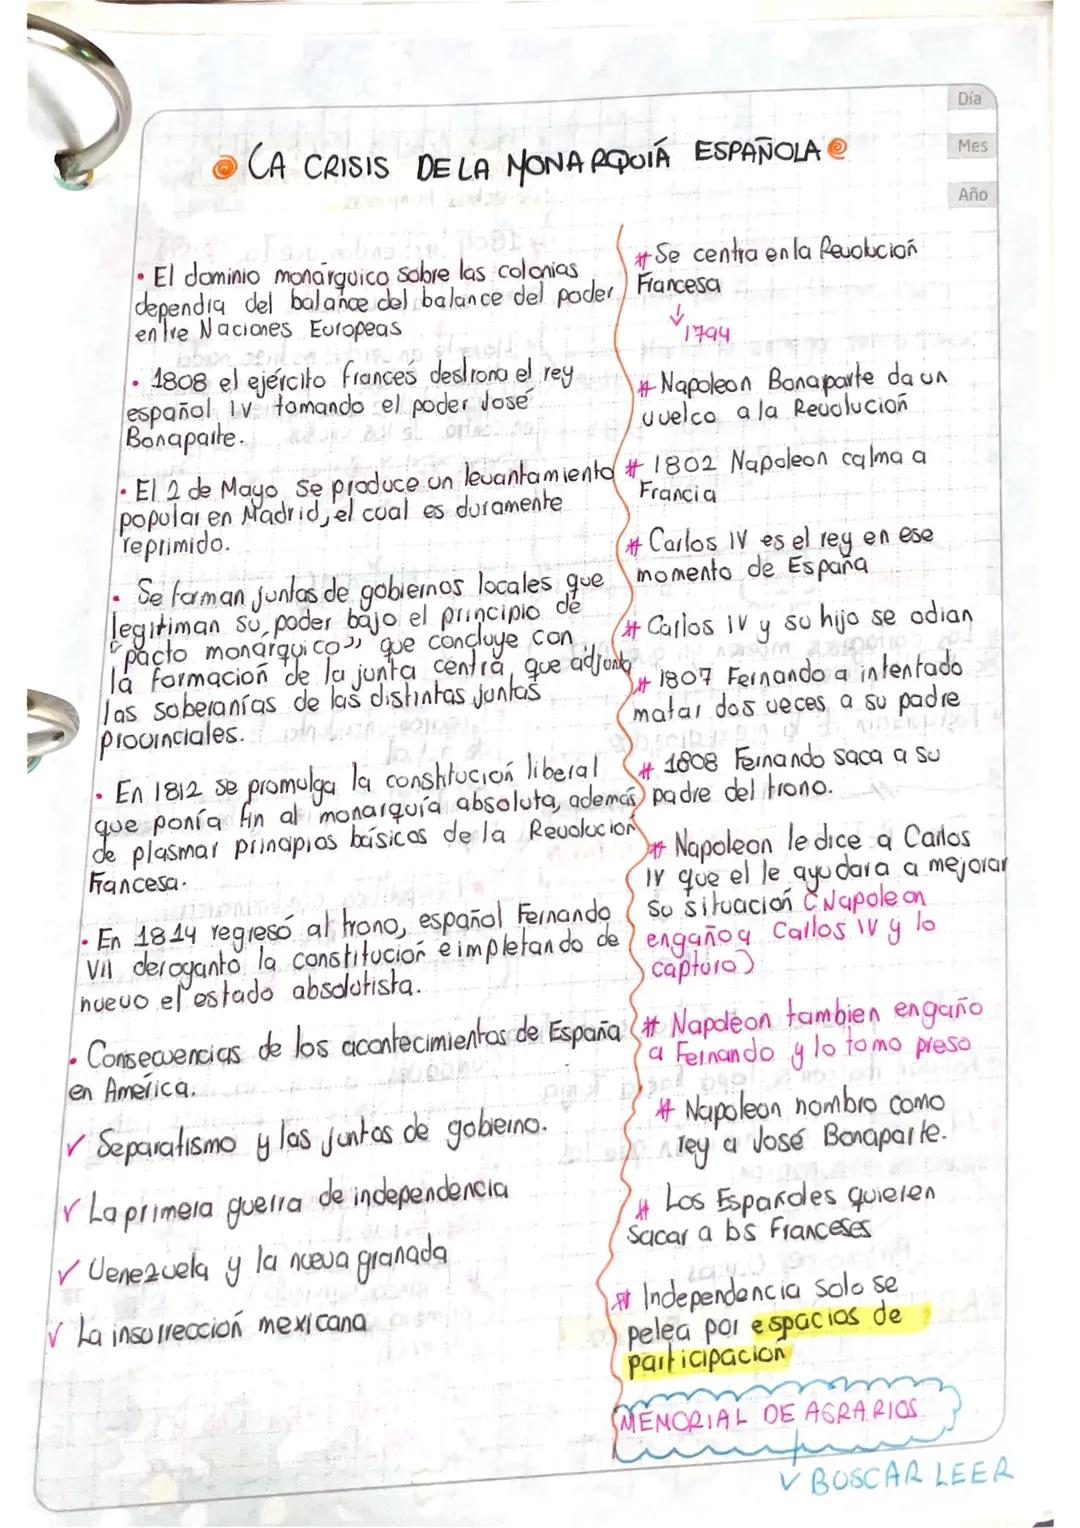 Día
Mes
Año
LA CRISIS DE LA MONARQUIÁ ESPAÑOLA
• El dominio monárquico sobre las colonias
dependia del balance del balance del poder
entre Naciones Europeas
• 1808 el ejército francés destrona el rey
español IV tomando el poder José
Bonaparte.
• El 2 de Mayo se produce un levantamiento
popular en Madrid, el cual es duramente
reprimido.
• Se forman juntas de gobiernos locales que
legitiman su poder bajo el principio de
"pacto monárquico" que concluye con
la formación de la junta centra que adjunta
las soberanías de las distintas juntas
provinciales.
• En 1812 se promulga la constitución liberal
que ponía fin al monarquía absoluta, además
de plasmar principios básicos de la Revolución
Francesa.
• En 1814 regresó al trono, español Fernando
VII deroganto la constitución e impletando de
nuevo el estado absolutista.
• Consecuencias de los acontecimientos de España
en América.
✓ Separatismo y las juntas de gobierno.
✓ La primera guerra de independencia
✓ Venezuela y la nueva granada
✓ La insorrección mexicana
# Se centra en la Revolución
Francesa
↓
1794
# Napoleon Bonaparte da un
vuelco a la Revolución
# 1802 Napoleon calma a
Francia
# Carlos IV es el rey en ese
momento de España
# Carlos IV y su hijo se odian
# 1807 Fernando a intentado
matar dos veces a su padre
# 1808 Fernando saca a su
padre del trono.
# Napoleon le dice a Carlos
IV que el le ayudara a mejorar
su situación (Napoleon
engaño a Carlos IV y lo
capturo)
# Napoleon tambien engaño
a Fernando y lo tomo preso
# Napoleon nombro como
rey a José Bonaparte.
# Los Españoles quieren
sacar a los Franceses
# Independencia solo se
pelea por espacios de
participación
MEMORIAL DE AGRARIOS
✓ BUSCAR LEER